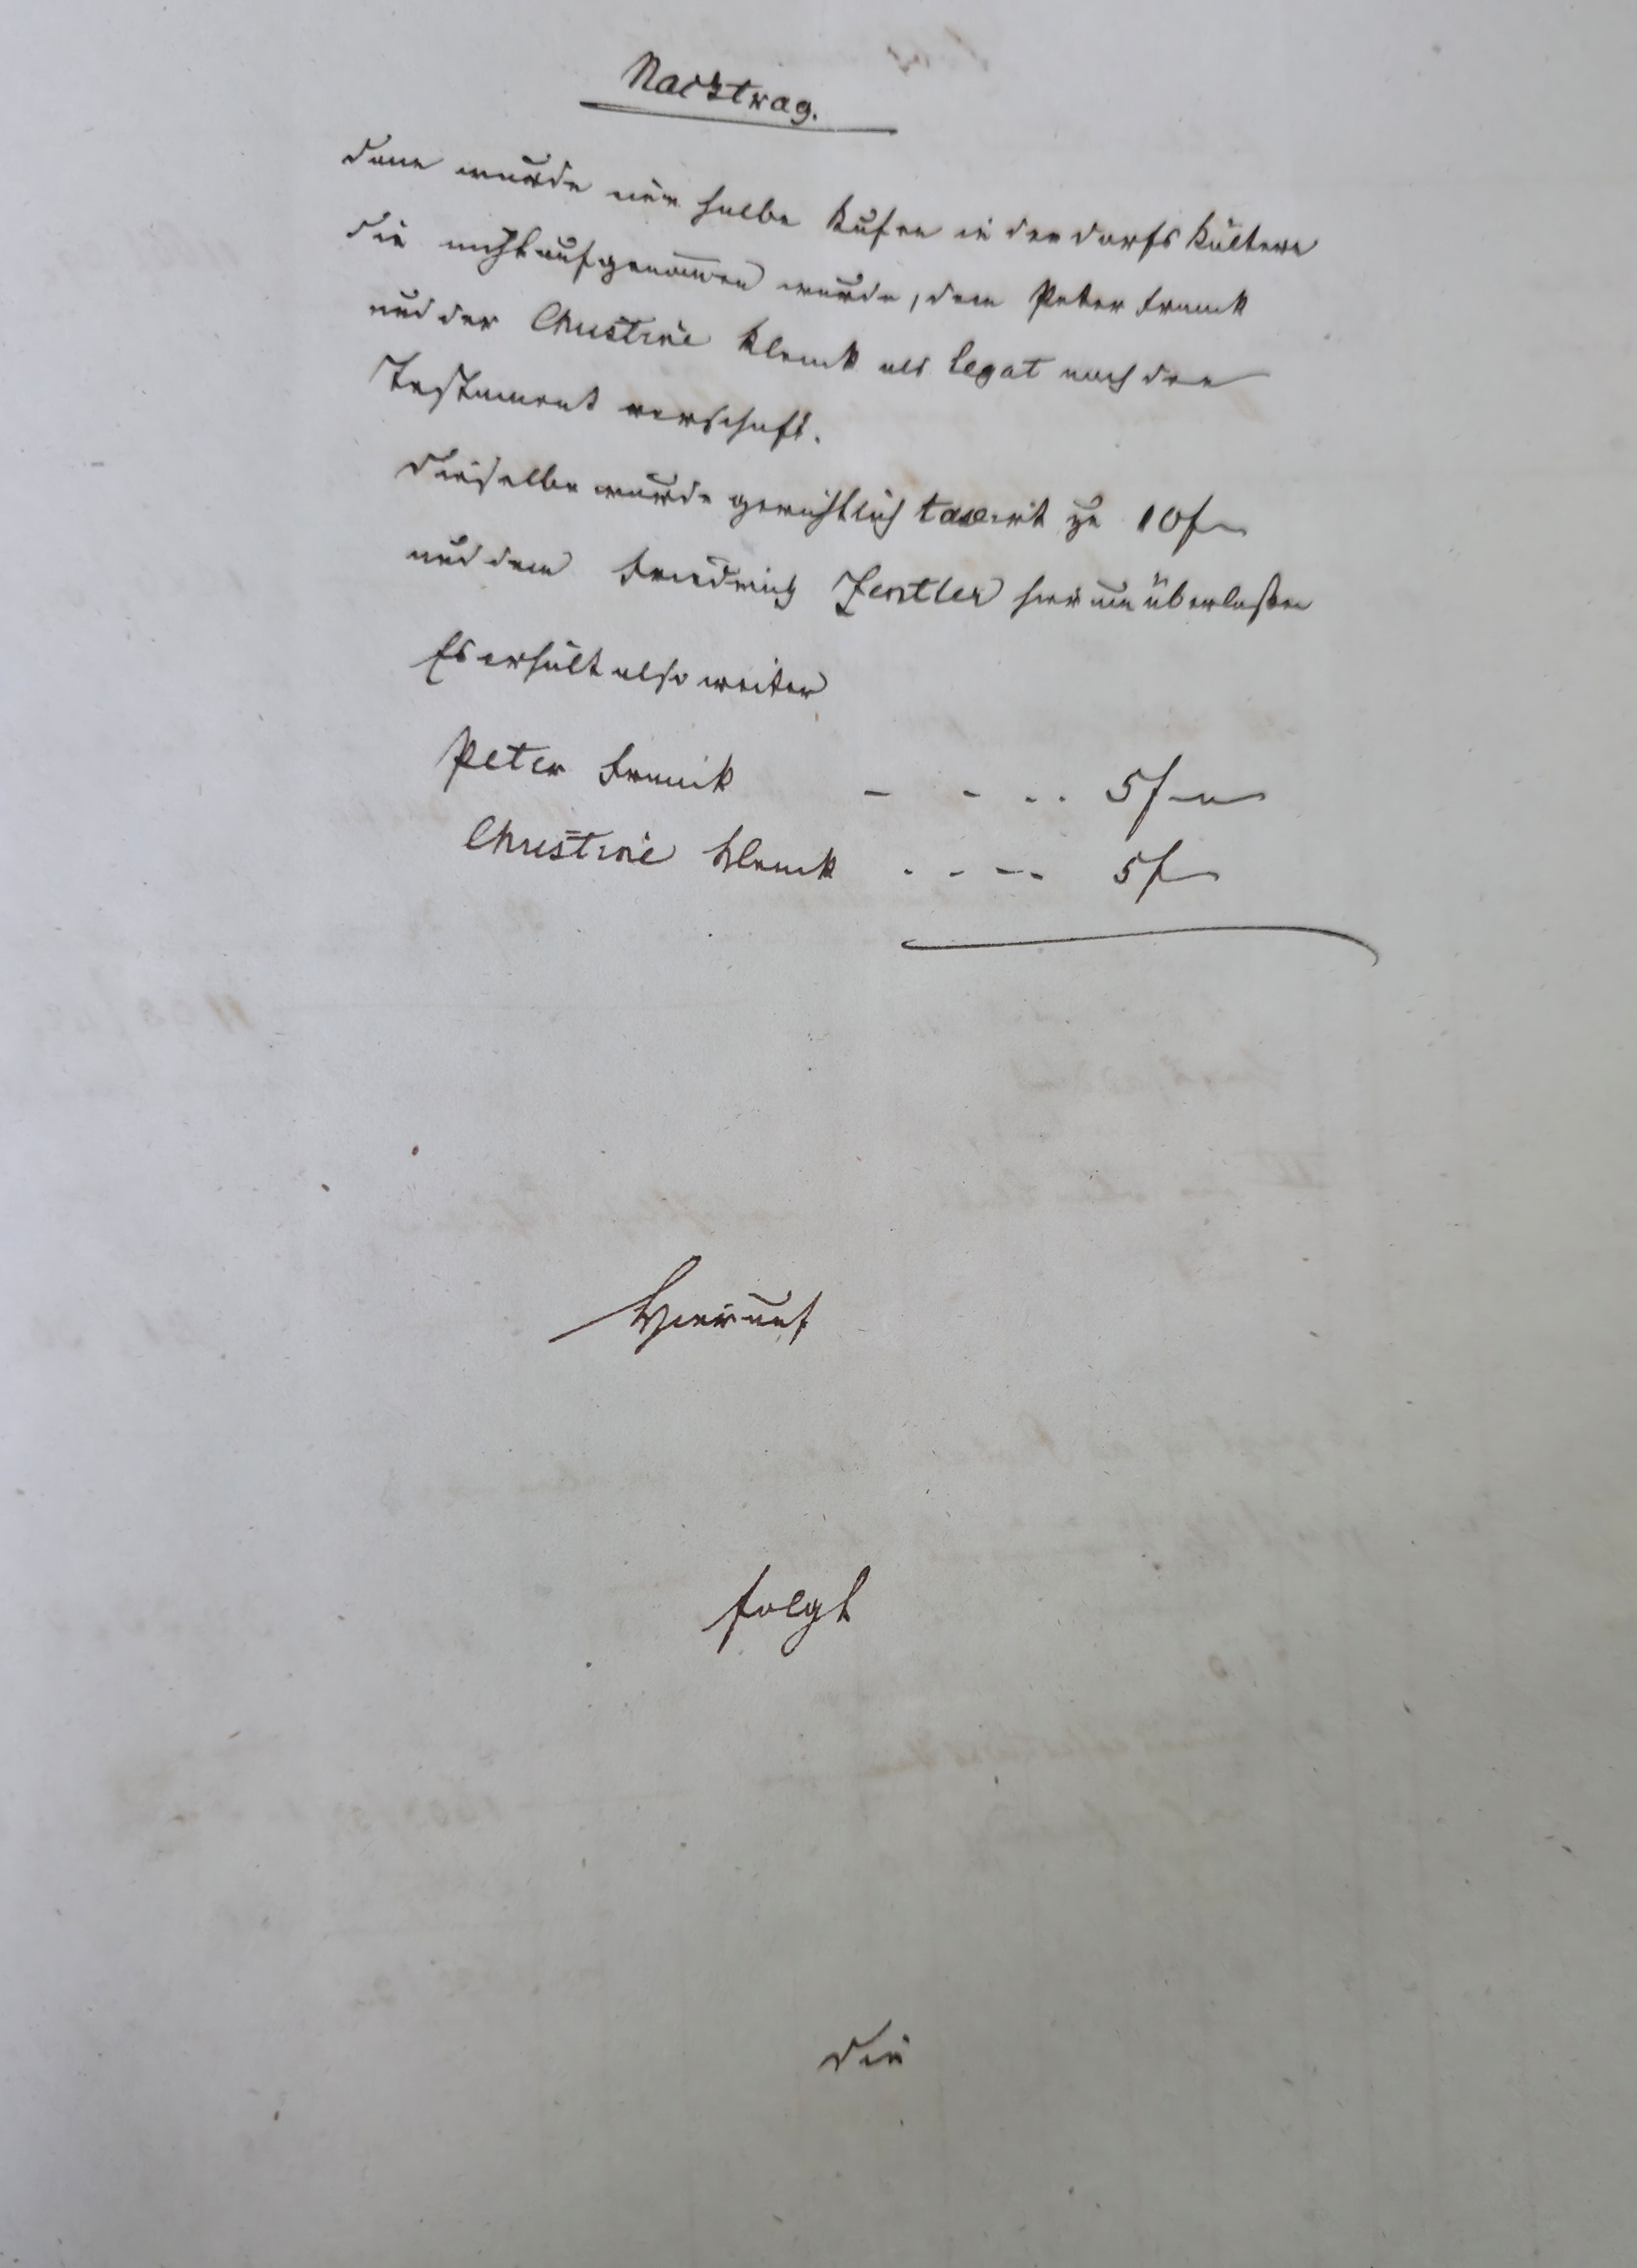 Nachtrag.
Dann wurde eine halbe Kufen in der Dorfs Kältern
die nicht aufgenommen wurde, dem Peter Franck
und der Christine Klenck als Legat nach dem
Testament verschaft.
Dieselbe wurde gerichtlich taxirt zu 10 f
und dem Friedrich Zentler hierum überlaßen
Es erhält also weiter
Peter Franck - - . . 5 f
Christine Klenck . . - - 5 f
Hierauf
folgt
die